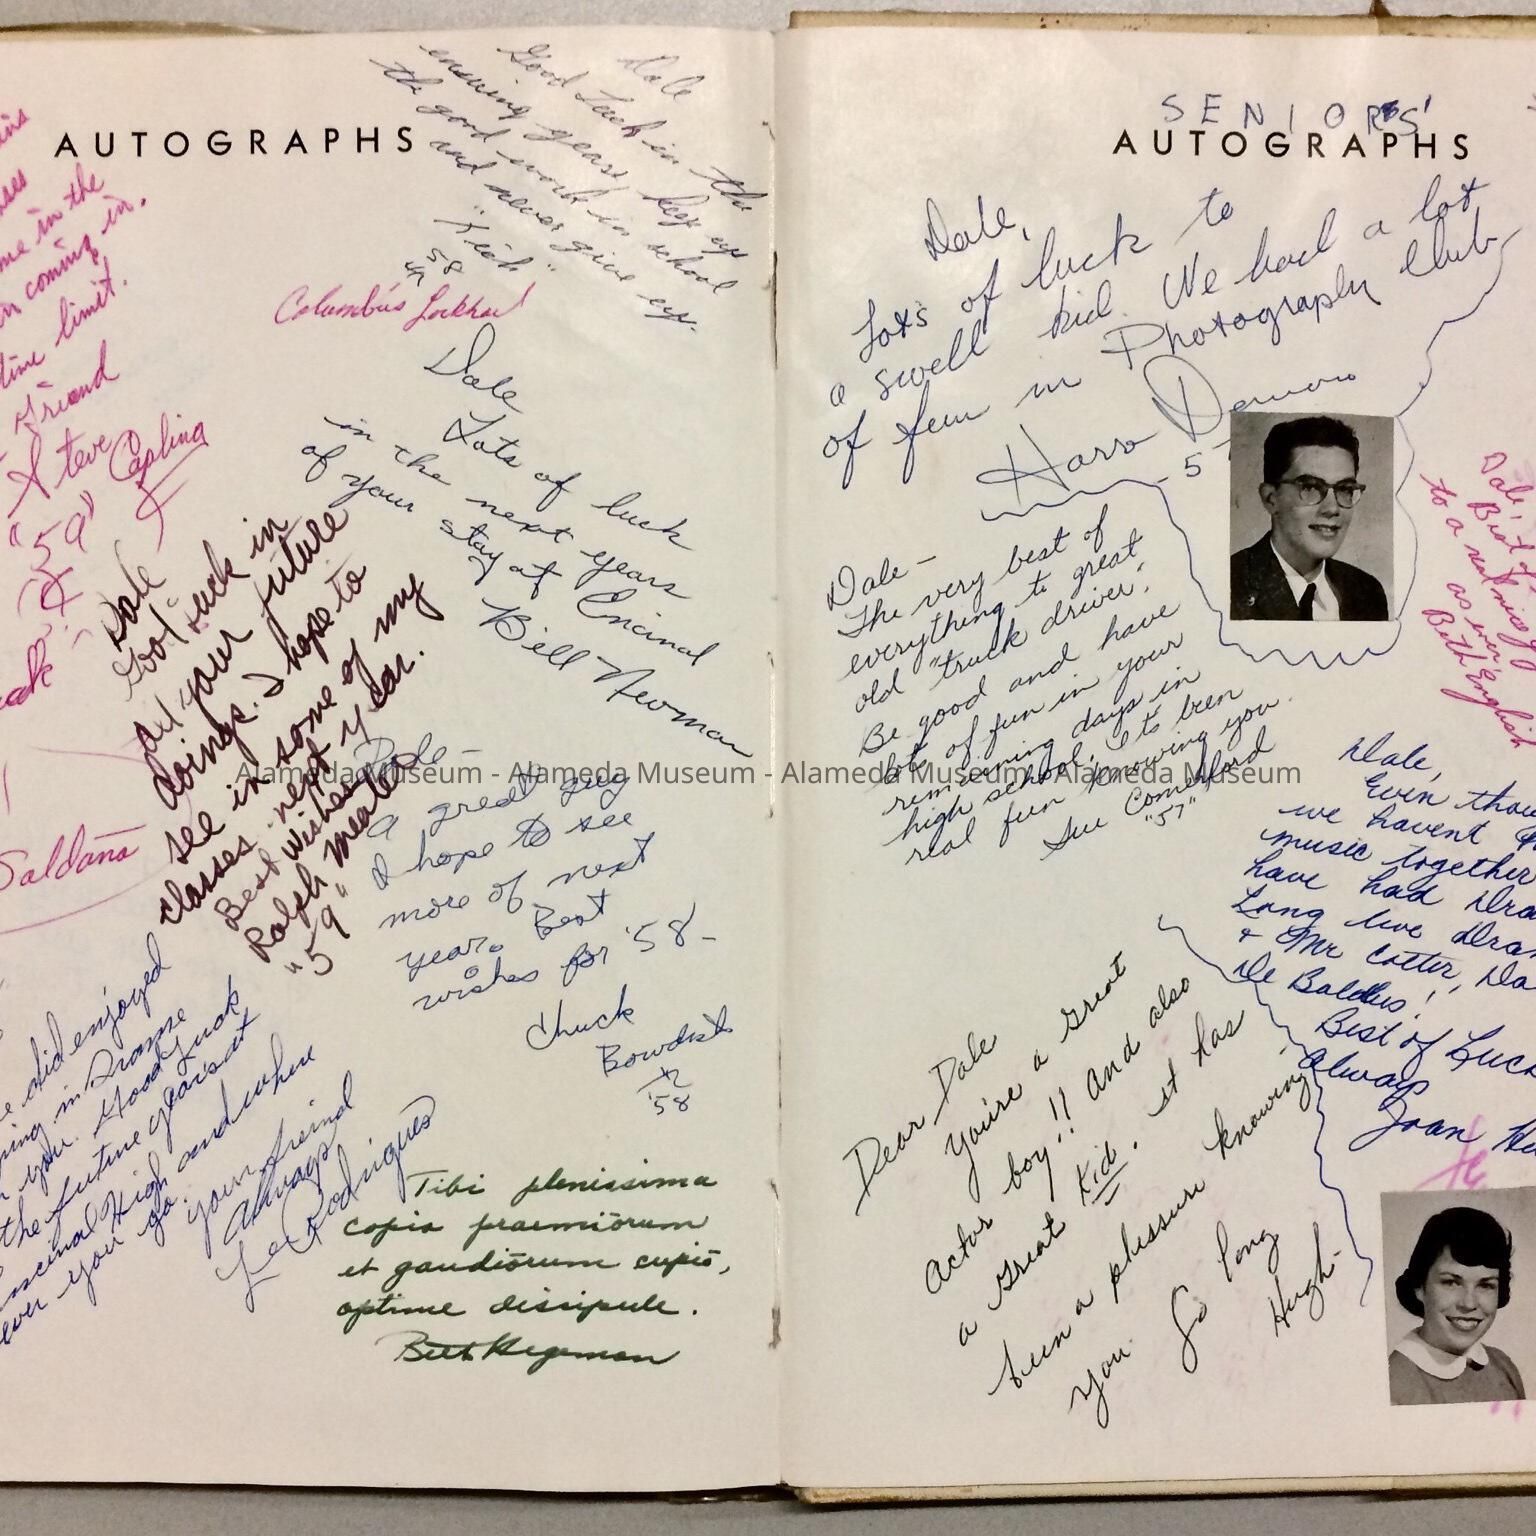 AUTOGRAPHS
Dale
Good Luck in the
ensuing years, keep up
the good work in school
and never give up.
'58
Columbus Lockhart
me in the
coming in.
time limit.
Friend
Steve Caslina
"59"
Dale
Lots of luck
in the next years
of your stay at Encinal
Bill Newman
Dale
Good Luck in
all your future
doings. I hope to
see in some of my
classes next year.
Best Wishes
Ralph
"59"
Dale -
a great guy
I hope to see
more of next
year. Best
wishes for '58 -
Chuck
Bowdish
'58
Saldaña
did enjoyed
in Drama
you. Good Luck
the future years at
Encinal High and where
ever you go.
your freind
Always
Rodrigues
Tibi plenissima
copia praemiōrum
et gaudiōrum cupiō,
optime discipule.
Beth Hegeman
SENIORS'
AUTOGRAPHS
Dale,
Lots of luck to
a swell kid. We had a lot
of fun in Photography Club
Harre Demoro
Dale -
The very best of
everything to great
old "truck driver".
Be good and have
lots of fun in your
remaining days in
high school. It's been
real fun knowing you.
Sue Comerford
"57"
Dale,
Best of
to a real nice
as ever,
Beth English
Dale,
Even
we havent
music together
have had
Long live
+ Mr Cotter,
De Baldus!
Best of Luck
Always
Joan
Dear Dale
You're a Great
Actor boy!! And also
a Great Kid. It has
been a plessure knowing
you. So long
Hugh -
Alameda Museum - Alameda Museum - Alameda Museum - Alameda Museum